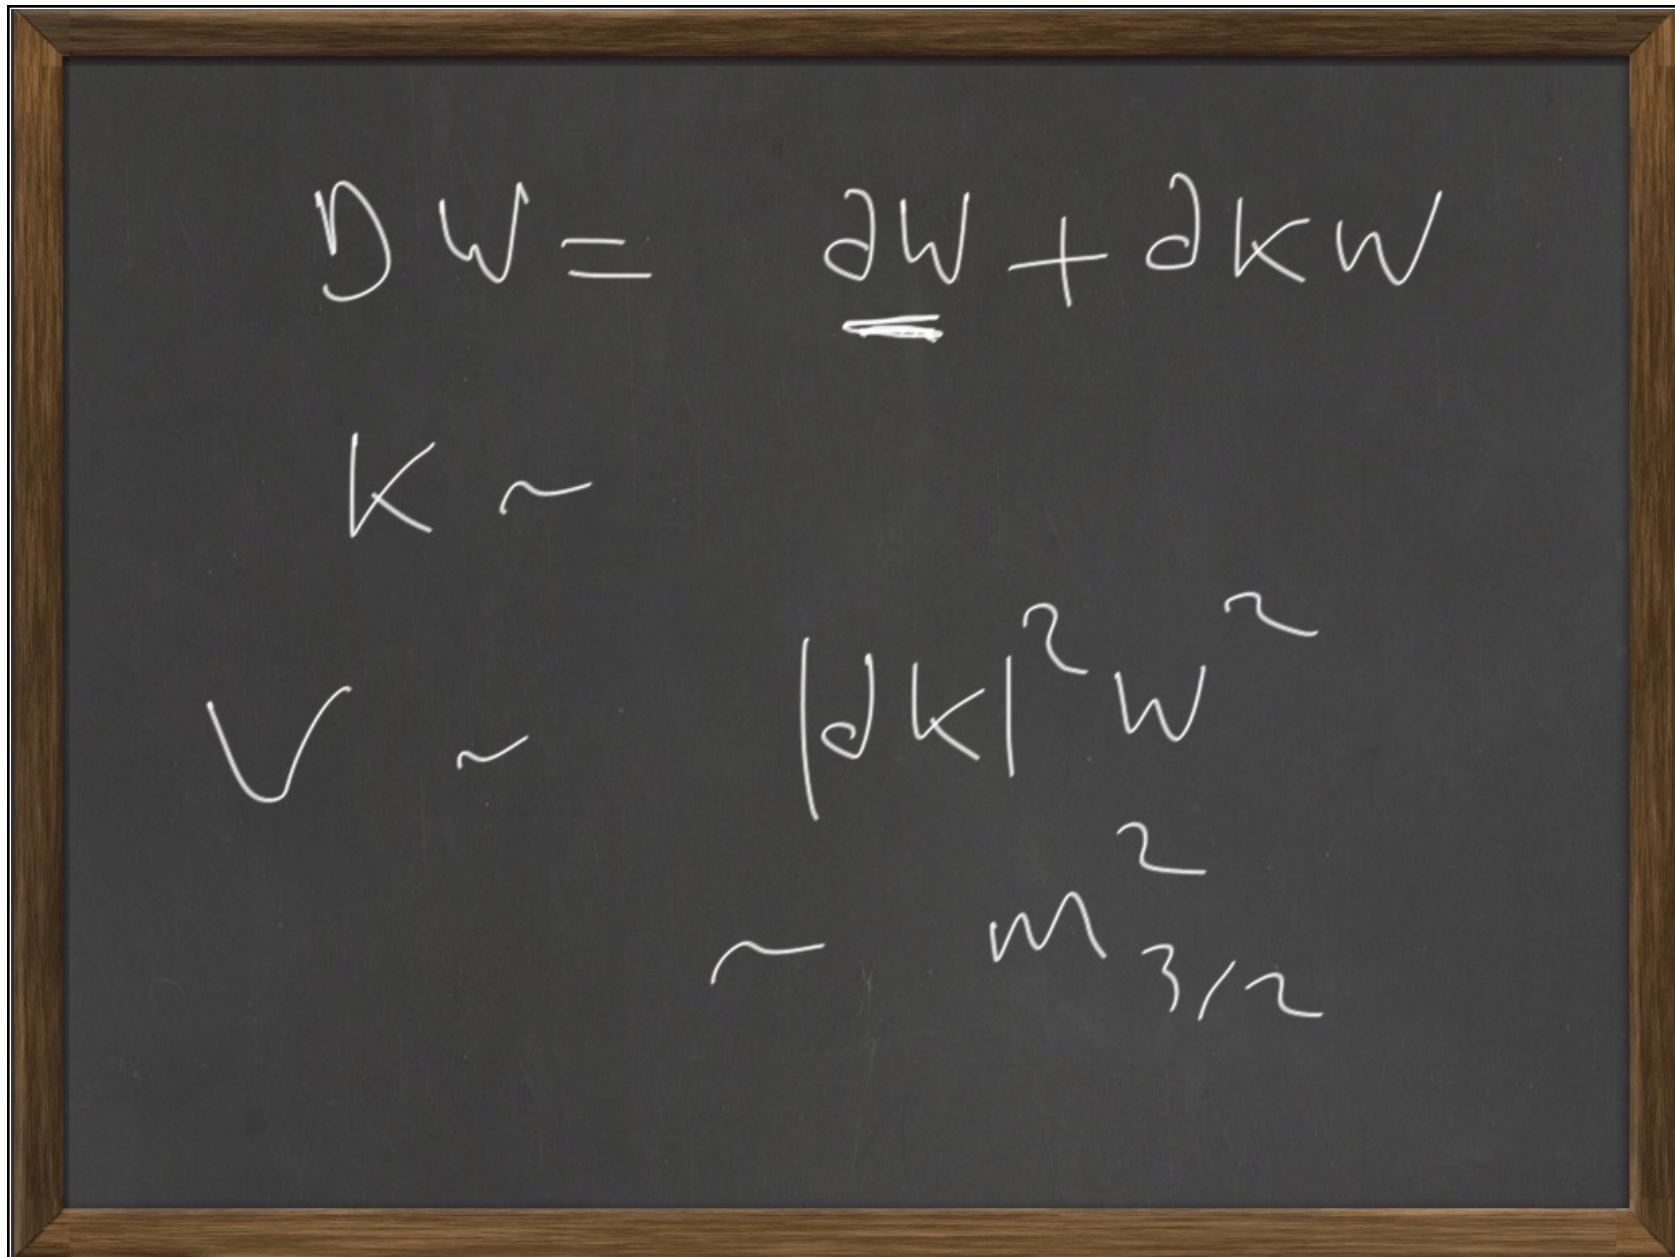 DW = ∂W + ∂KW
K ~
V ~ |∂K|²W²
~ m²₃/₂